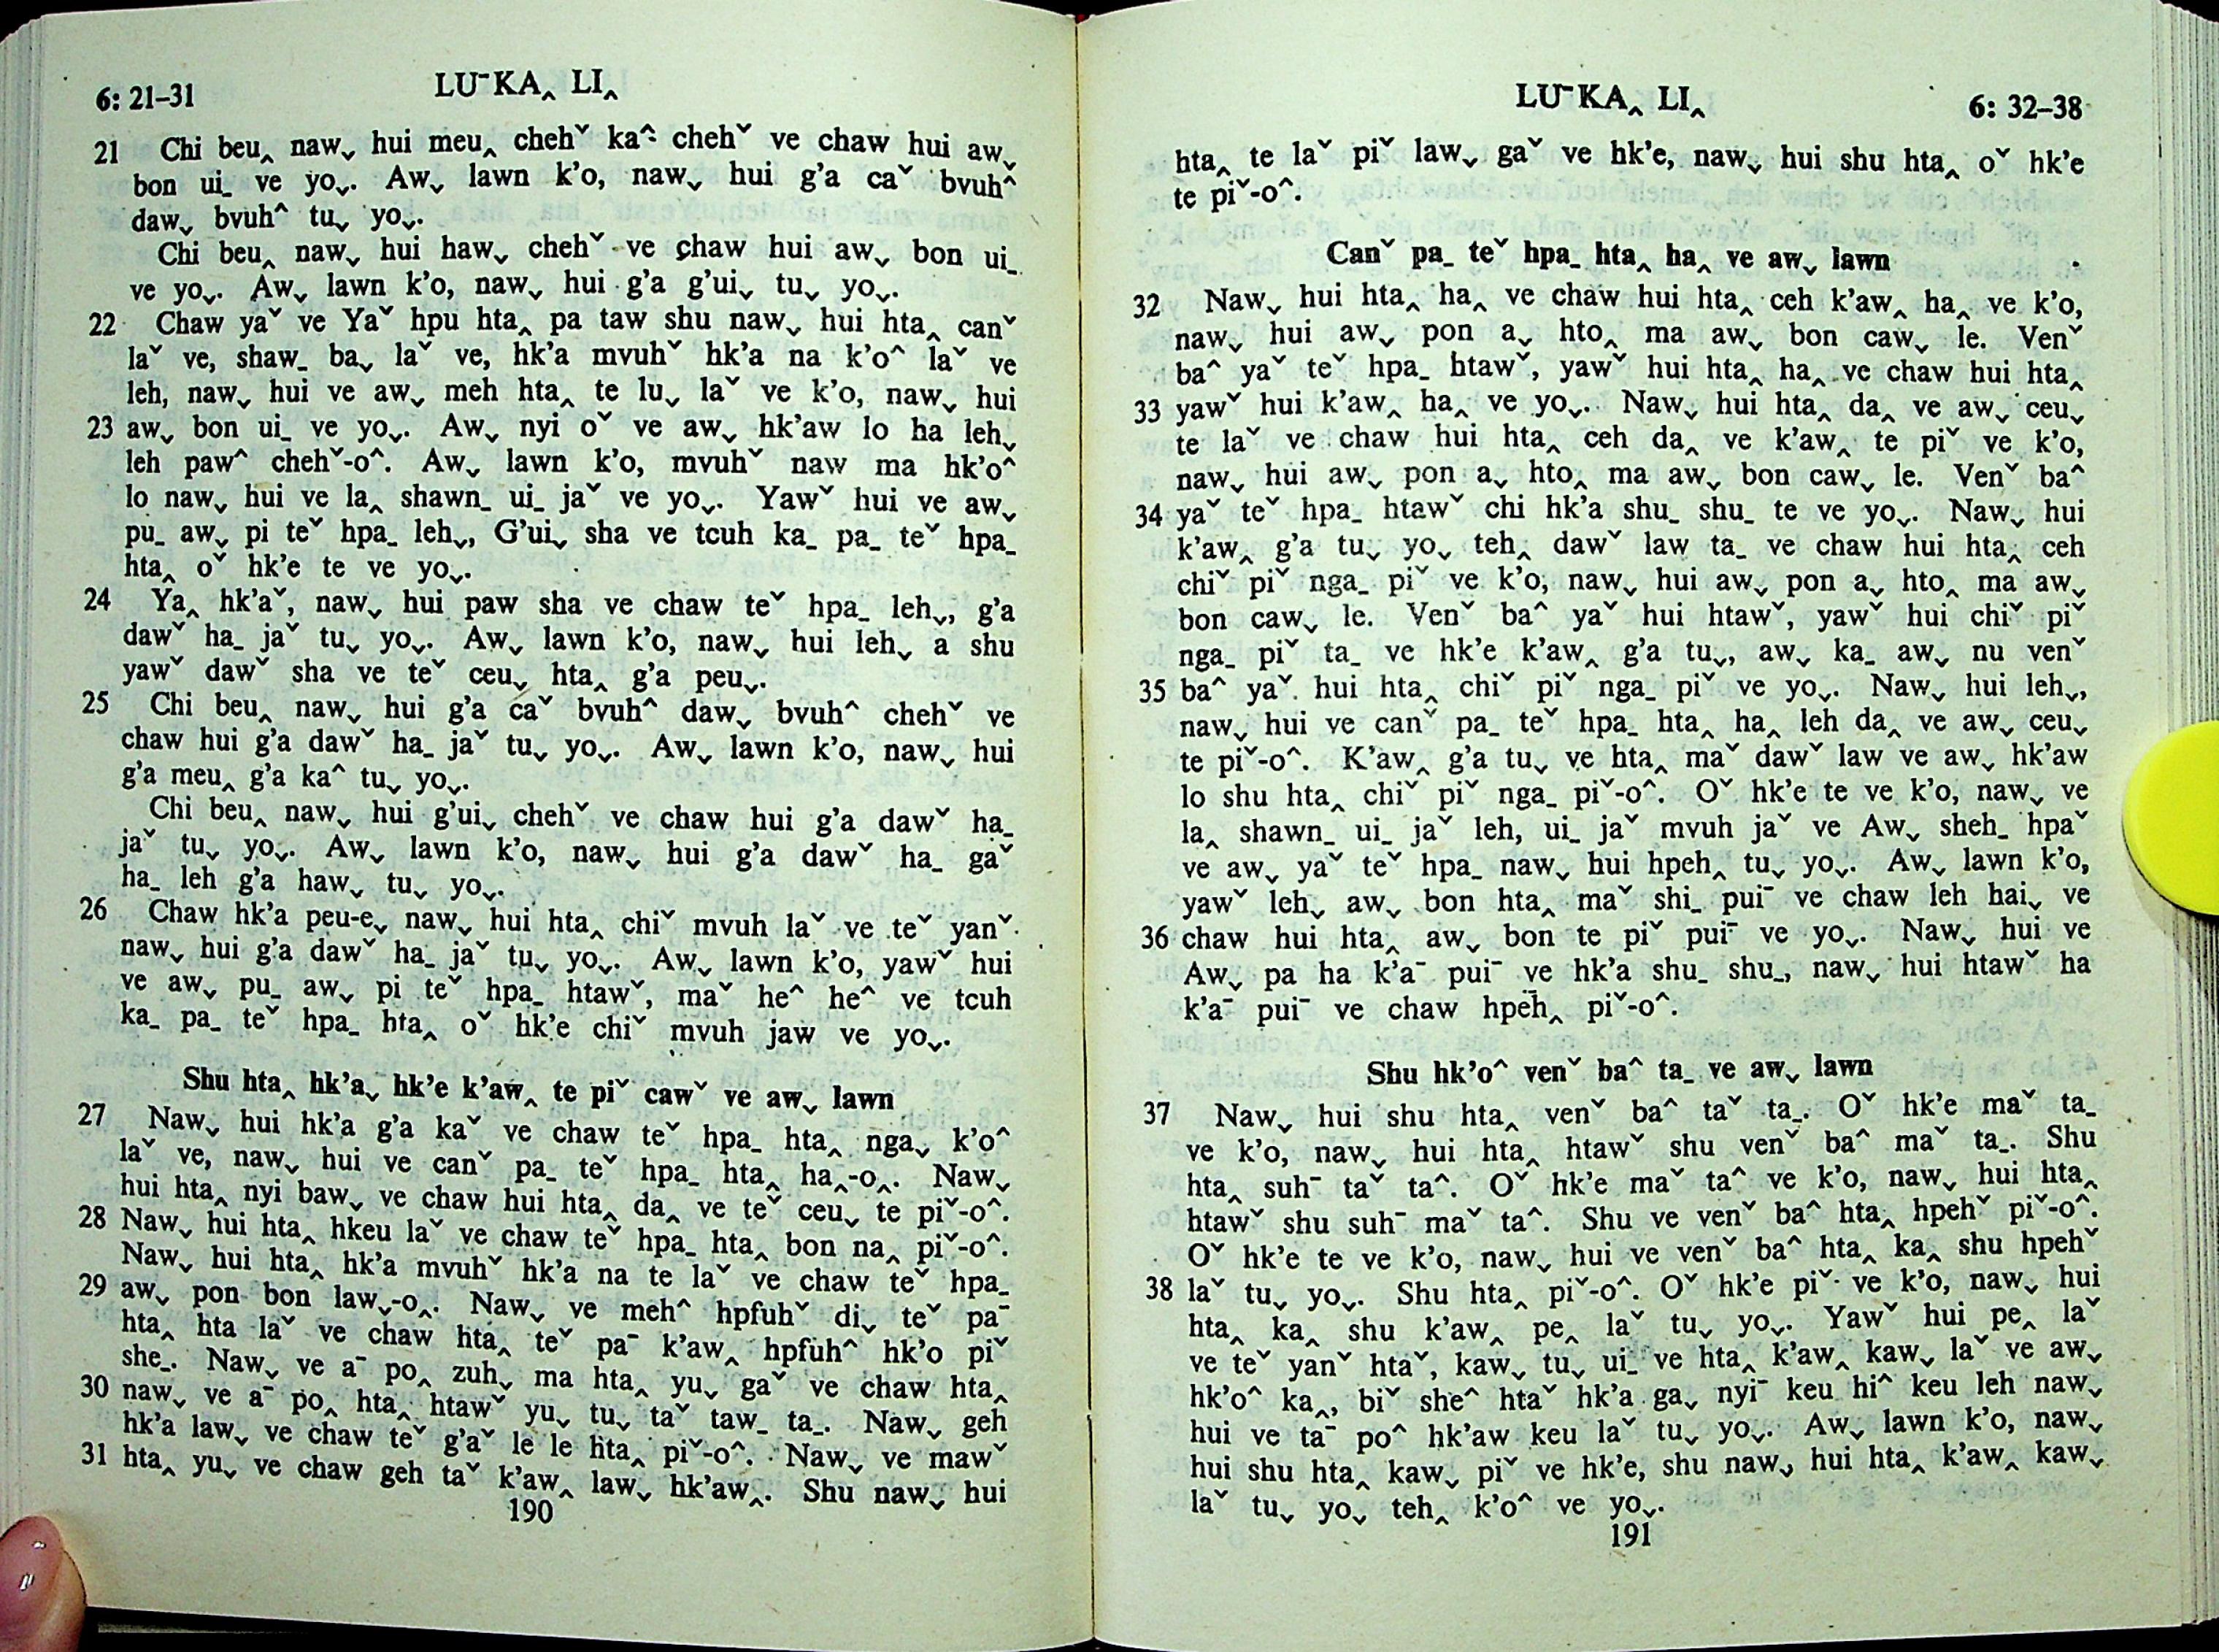 6: 21–31
LUˉKA‸ LI‸
21 Chi beu‸ naw˯ hui meu‸ chehˇ ka^ chehˇ ve chaw hui aw˯
bon ui_ ve yo˯. Aw˯ lawn k’o, naw˯ hui g’a caˇ bvuh^
daw˯ bvuh^ tu˯ yo˯.
Chi beu‸ naw˯ hui haw˯ chehˇ ve chaw hui aw˯ bon ui_
ve yo˯. Aw˯ lawn k’o, naw˯ hui g’a g’ui˯ tu˯ yo˯.
22 Chaw yaˇ ve Yaˇ hpu hta‸ pa taw shu naw˯ hui hta‸ canˇ
laˇ ve, shaw_ ba˯ laˇ ve, hk’a mvuhˇ hk’a na k’o^ laˇ ve
leh, naw˯ hui ve aw˯ meh hta‸ te lu˯ laˇ ve k’o, naw˯ hui
23 aw˯ bon ui_ ve yo˯. Aw˯ nyi oˇ ve aw˯ hk’aw lo ha leh˯
leh paw^ chehˇ-o^. Aw˯ lawn k’o, mvuhˇ naw ma hk’o^
lo naw˯ hui ve la‸ shawn_ ui_ jaˇ ve yo˯. Yawˇ hui ve aw˯
pu_ aw˯ pi teˇ hpa_ leh˯, G’ui˯ sha ve tcuh ka_ pa_ teˇ hpa_
hta‸ oˇ hk’e te ve yo˯.
24 Ya‸ hk’aˇ, naw˯ hui paw sha ve chaw teˇ hpa_ leh˯, g’a
dawˇ ha_ jaˇ tu˯ yo˯. Aw˯ lawn k’o, naw˯ hui leh˯ a shu
yawˇ dawˇ sha ve teˇ ceu˯ hta‸ g’a peu˯.
25 Chi beu‸ naw˯ hui g’a caˇ bvuh^ daw˯ bvuh^ chehˇ ve
chaw hui g’a dawˇ ha_ jaˇ tu˯ yo˯. Aw˯ lawn k’o, naw˯ hui
g’a meu‸ g’a ka^ tu˯ yo˯.
Chi beu‸ naw˯ hui g’ui˯ chehˇ ve chaw hui g’a dawˇ ha_
jaˇ tu˯ yo˯. Aw˯ lawn k’o, naw˯ hui g’a dawˇ ha_ gaˇ
ha_ leh g’a haw˯ tu˯ yo˯.
26 Chaw hk’a peu-e˯ naw˯ hui hta‸ chiˇ mvuh laˇ ve teˇ yanˇ
naw˯ hui g’a dawˇ ha_ jaˇ tu˯ yo˯. Aw˯ lawn k’o, yawˇ hui
ve aw˯ pu_ aw˯ pi teˇ hpa_ htawˇ, maˇ he^ he^ ve tcuh
ka_ pa_ teˇ hpa_ hta‸ oˇ hk’e chiˇ mvuh jaw ve yo˯.
Shu hta‸ hk’a˯ hk’e k’aw‸ te piˇ cawˇ ve aw˯ lawn
27 Naw˯ hui hk’a g’a kaˇ ve chaw teˇ hpa_ hta‸ nga˯ k’o^
laˇ ve, naw˯ hui ve canˇ pa_ teˇ hpa_ hta‸ ha‸-o‸. Naw˯
hui hta‸ nyi baw˯ ve chaw hui hta‸ da‸ ve teˇ ceu˯ te piˇ-o^.
28 Naw˯ hui hta‸ hkeu laˇ ve chaw teˇ hpa_ hta‸ bon na‸ piˇ-o^.
Naw˯ hui hta‸ hk’a mvuhˇ hk’a na te laˇ ve chaw teˇ hpa_
29 aw˯ pon bon law˯-o‸. Naw˯ ve meh^ hpfuhˇ di˯ teˇ paˉ
hta‸ hta laˇ ve chaw hta‸ teˇ paˉ k’aw‸ hpfuh^ hk’o piˇ
she_. Naw˯ ve aˉ po‸ zuh˯ ma hta‸ yu˯ gaˇ ve chaw hta‸
30 naw˯ ve aˉ po‸ hta‸ htawˇ yu˯ tu˯ taˇ taw_ ta_. Naw˯ geh
hk’a law˯ ve chaw teˇ g’aˇ le le hta‸ piˇ-o^. Naw˯ ve mawˇ
31 hta‸ yu˯ ve chaw geh taˇ k’aw‸ law˯ hk’aw‸. Shu naw˯ hui
190
LUˉKA‸ LI‸
6: 32–38
hta‸ te laˇ piˇ law˯ gaˇ ve hk’e, naw˯ hui shu hta‸ oˇ hk’e
te piˇ-o^.
Canˇ pa_ teˇ hpa_ hta‸ ha‸ ve aw˯ lawn
32 Naw˯ hui hta‸ ha‸ ve chaw hui hta‸ ceh k’aw‸ ha‸ ve k’o,
naw˯ hui aw˯ pon a˯ hto‸ ma aw˯ bon caw˯ le. Venˇ
ba^ yaˇ teˇ hpa_ htawˇ, yawˇ hui hta‸ ha‸ ve chaw hui hta‸
33 yawˇ hui k’aw‸ ha‸ ve yo˯. Naw˯ hui hta‸ da‸ ve aw˯ ceu˯
te laˇ ve chaw hui hta‸ ceh da‸ ve k’aw‸ te piˇ ve k’o,
naw˯ hui aw˯ pon a˯ hto‸ ma aw˯ bon caw˯ le. Venˇ ba^
34 yaˇ teˇ hpa_ htawˇ chi hk’a shu_ shu_ te ve yo˯. Naw˯ hui
k’aw‸ g’a tu˯ yo˯ teh‸ dawˇ law ta_ ve chaw hui hta‸ ceh
chiˇ piˇ nga_ piˇ ve k’o, naw˯ hui aw˯ pon a˯ hto‸ ma aw˯
bon caw˯ le. Venˇ ba^ yaˇ hui htawˇ, yawˇ hui chiˇ piˇ
nga_ piˇ ta_ ve hk’e k’aw‸ g’a tu˯, aw˯ ka_ aw˯ nu venˇ
35 ba^ yaˇ hui hta‸ chiˇ piˇ nga_ piˇ ve yo˯. Naw˯ hui leh˯,
naw˯ hui ve canˇ pa_ teˇ hpa_ hta‸ ha‸ leh da‸ ve aw˯ ceu˯
te piˇ-o^. K’aw‸ g’a tu˯ ve hta‸ maˇ dawˇ law ve aw˯ hk’aw
lo shu hta‸ chiˇ piˇ nga_ piˇ-o^. Oˇ hk’e te ve k’o, naw˯ ve
la‸ shawn_ ui_ jaˇ leh, ui_ jaˇ mvuh jaˇ ve Aw˯ sheh_ hpaˇ
ve aw˯ yaˇ teˇ hpa_ naw˯ hui hpeh‸ tu˯ yo˯. Aw˯ lawn k’o,
yawˇ leh˯ aw˯ bon hta‸ maˇ shi_ puiˉ ve chaw leh hai˯ ve
36 chaw hui hta‸ aw˯ bon te piˇ puiˉ ve yo˯. Naw˯ hui ve
Aw˯ pa ha k’aˉ puiˉ ve hk’a shu_ shu_, naw˯ hui htawˇ ha
k’aˉ puiˉ ve chaw hpeh‸ piˇ-o^.
Shu hk’o^ venˇ ba^ ta_ ve aw˯ lawn
37 Naw˯ hui shu hta‸ venˇ ba^ taˇ ta_. Oˇ hk’e maˇ ta_
ve k’o, naw˯ hui hta‸ htawˇ shu venˇ ba^ maˇ ta_. Shu
hta‸ suhˉ taˇ ta^. Oˇ hk’e maˇ ta^ ve k’o, naw˯ hui hta‸
htawˇ shu suhˉ maˇ ta^. Shu ve venˇ ba^ hta‸ hpehˇ piˇ-o^.
Oˇ hk’e te ve k’o, naw˯ hui ve venˇ ba^ hta‸ ka‸ shu hpehˇ
38 laˇ tu˯ yo˯. Shu hta‸ piˇ-o^. Oˇ hk’e piˇ ve k’o, naw˯ hui
hta‸ ka‸ shu k’aw‸ pe‸ laˇ tu˯ yo˯. Yawˇ hui pe‸ laˇ
ve teˇ yanˇ htaˇ, kaw˯ tu˯ ui_ ve hta‸ k’aw‸ kaw˯ laˇ ve aw˯
hk’o^ ka‸, biˇ she^ htaˇ hk’a ga˯ nyiˉ keu hi^ keu leh naw˯
hui ve taˉ po^ hk’aw keu laˇ tu˯ yo˯. Aw˯ lawn k’o, naw˯
hui shu hta‸ kaw˯ piˇ ve hk’e, shu naw˯ hui hta‸ k’aw‸ kaw˯
laˇ tu˯ yo˯ teh‸ k’o^ ve yo˯.
191